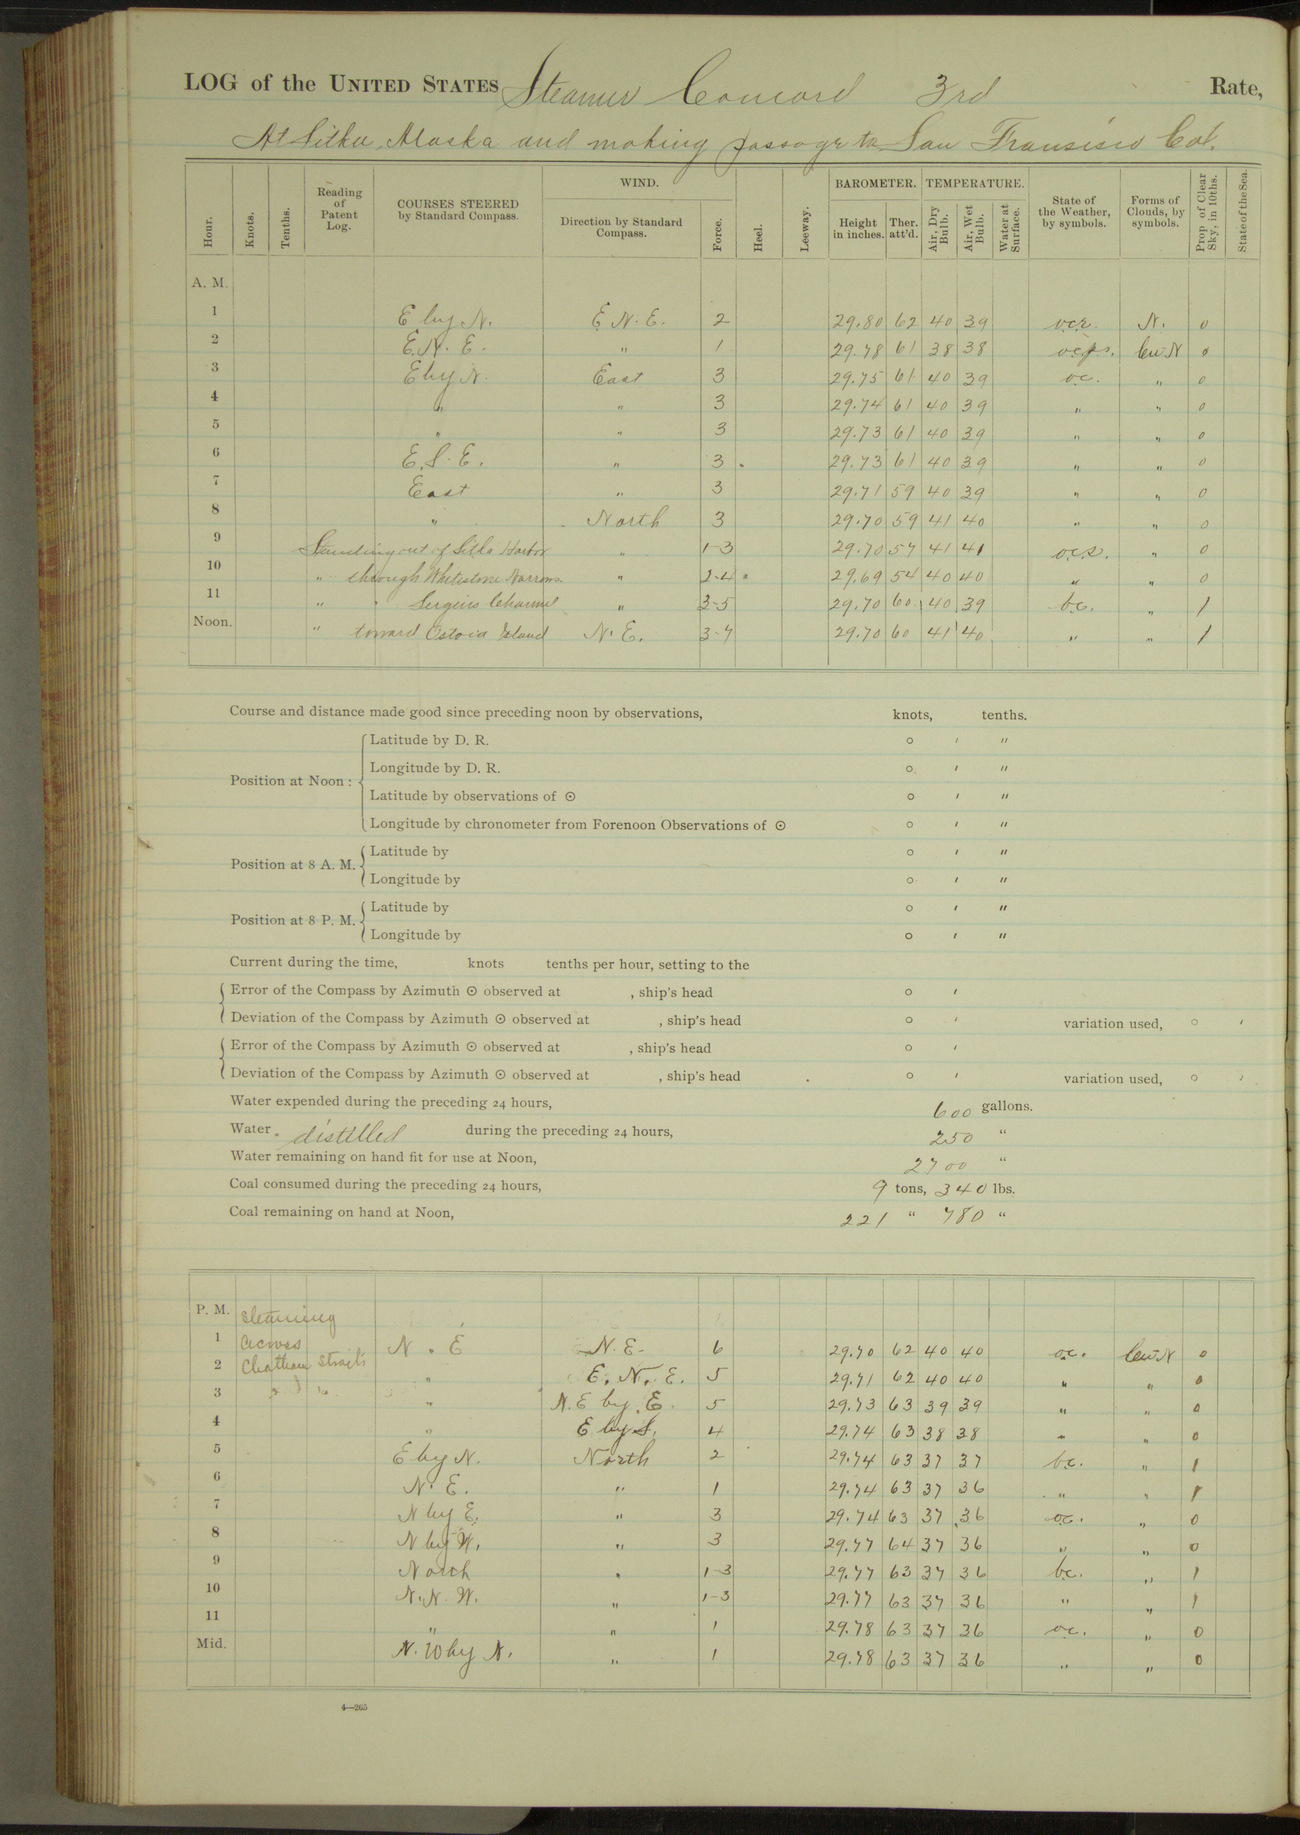 LOG of the UNITED STATES Steamer Concord 3rd Rate,
At Sitka, Alaska and making passage to San Fransisco Cal.
Hour. Knots. Tenths. Reading of Patent Log. COURSES STEERED by Standard Compass. WIND. Direction by Standard Compass. Force. Heel. Leeway. BAROMETER. Height in inches. Ther. att'd. TEMPERATURE. Air, Dry Bulb. Air, Wet Bulb. Water at Surface. State of the Weather, by symbols. Forms of Clouds, by symbols. Prop. of Clear Sky, in 10ths. State of the Sea.
A. M.
1 E by N. E. N. E. 2 29.80 62 40 39 ocr. N. 0
2 E. N. E. " 1 29.78 61 38 38 Cu N 0
3 E by N. East 3 29.75 61 40 39 oc. " 0
4 " " 3 29.74 61 40 39 " " 0
5 " " 3 29.73 61 40 39 " " 0
6 E. S. E. " 3 29.73 61 40 39 " " 0
7 East " 3 29.71 59 40 39 " " 0
8 " North 3 29.70 59 41 40 " " 0
9 Standing out of Sitka Harbor " 1-3 29.70 57 41 41 ocs. " 0
10 " through Whitestone Narrows " 2-4 29.69 54 40 40 " " 0
11 " " Sergius Channel " 3-5 29.70 60 40 39 bc. " 1
Noon. " toward Ostoia Island N. E. 3-7 29.70 60 41 40 " " 1
Course and distance made good since preceding noon by observations, knots, tenths.
Position at Noon: Latitude by D. R. ° ′ ″
Longitude by D. R. ° ′ ″
Latitude by observations of ☉ ° ′ ″
Longitude by chronometer from Forenoon Observations of ☉ ° ′ ″
Position at 8 A. M. Latitude by ° ′ ″
Longitude by ° ′ ″
Position at 8 P. M. Latitude by ° ′ ″
Longitude by ° ′ ″
Current during the time, knots tenths per hour, setting to the
Error of the Compass by Azimuth ☉ observed at , ship's head ° ′
Deviation of the Compass by Azimuth ☉ observed at , ship's head ° ′ variation used, ° ′
Error of the Compass by Azimuth ☉ observed at , ship's head ° ′
Deviation of the Compass by Azimuth ☉ observed at , ship's head ° ′ variation used, ° ′
Water expended during the preceding 24 hours, 600 gallons.
Water distilled during the preceding 24 hours, 250 "
Water remaining on hand fit for use at Noon, 2700 "
Coal consumed during the preceding 24 hours, 9 tons, 340 lbs.
Coal remaining on hand at Noon, 221 " 780 "
P. M. Steaming
1 across N. E N. E. 6 29.70 62 40 40 oc. Cu N 0
2 Chatham Straits " E. N. E. 5 29.71 62 40 40 " " 0
3 " " " N. E by E. 5 29.73 63 39 39 " " 0
4 " E by S. 4 29.74 63 38 38 " " 0
5 E by N. North 2 29.74 63 37 37 bc. " 1
6 N. E. " 1 29.74 63 37 36 " " 1
7 N by E. " 3 29.74 63 37 36 oc. " 0
8 N by W. " 3 29.77 64 37 36 " " 0
9 North " 1-3 29.77 63 37 36 bc. " 1
10 N. N. W. " 1-3 29.77 63 37 36 " " 1
11 " " 1 29.78 63 37 36 oc. " 0
Mid. N. W by N. " 1 29.78 63 37 36 " " 0
4—265